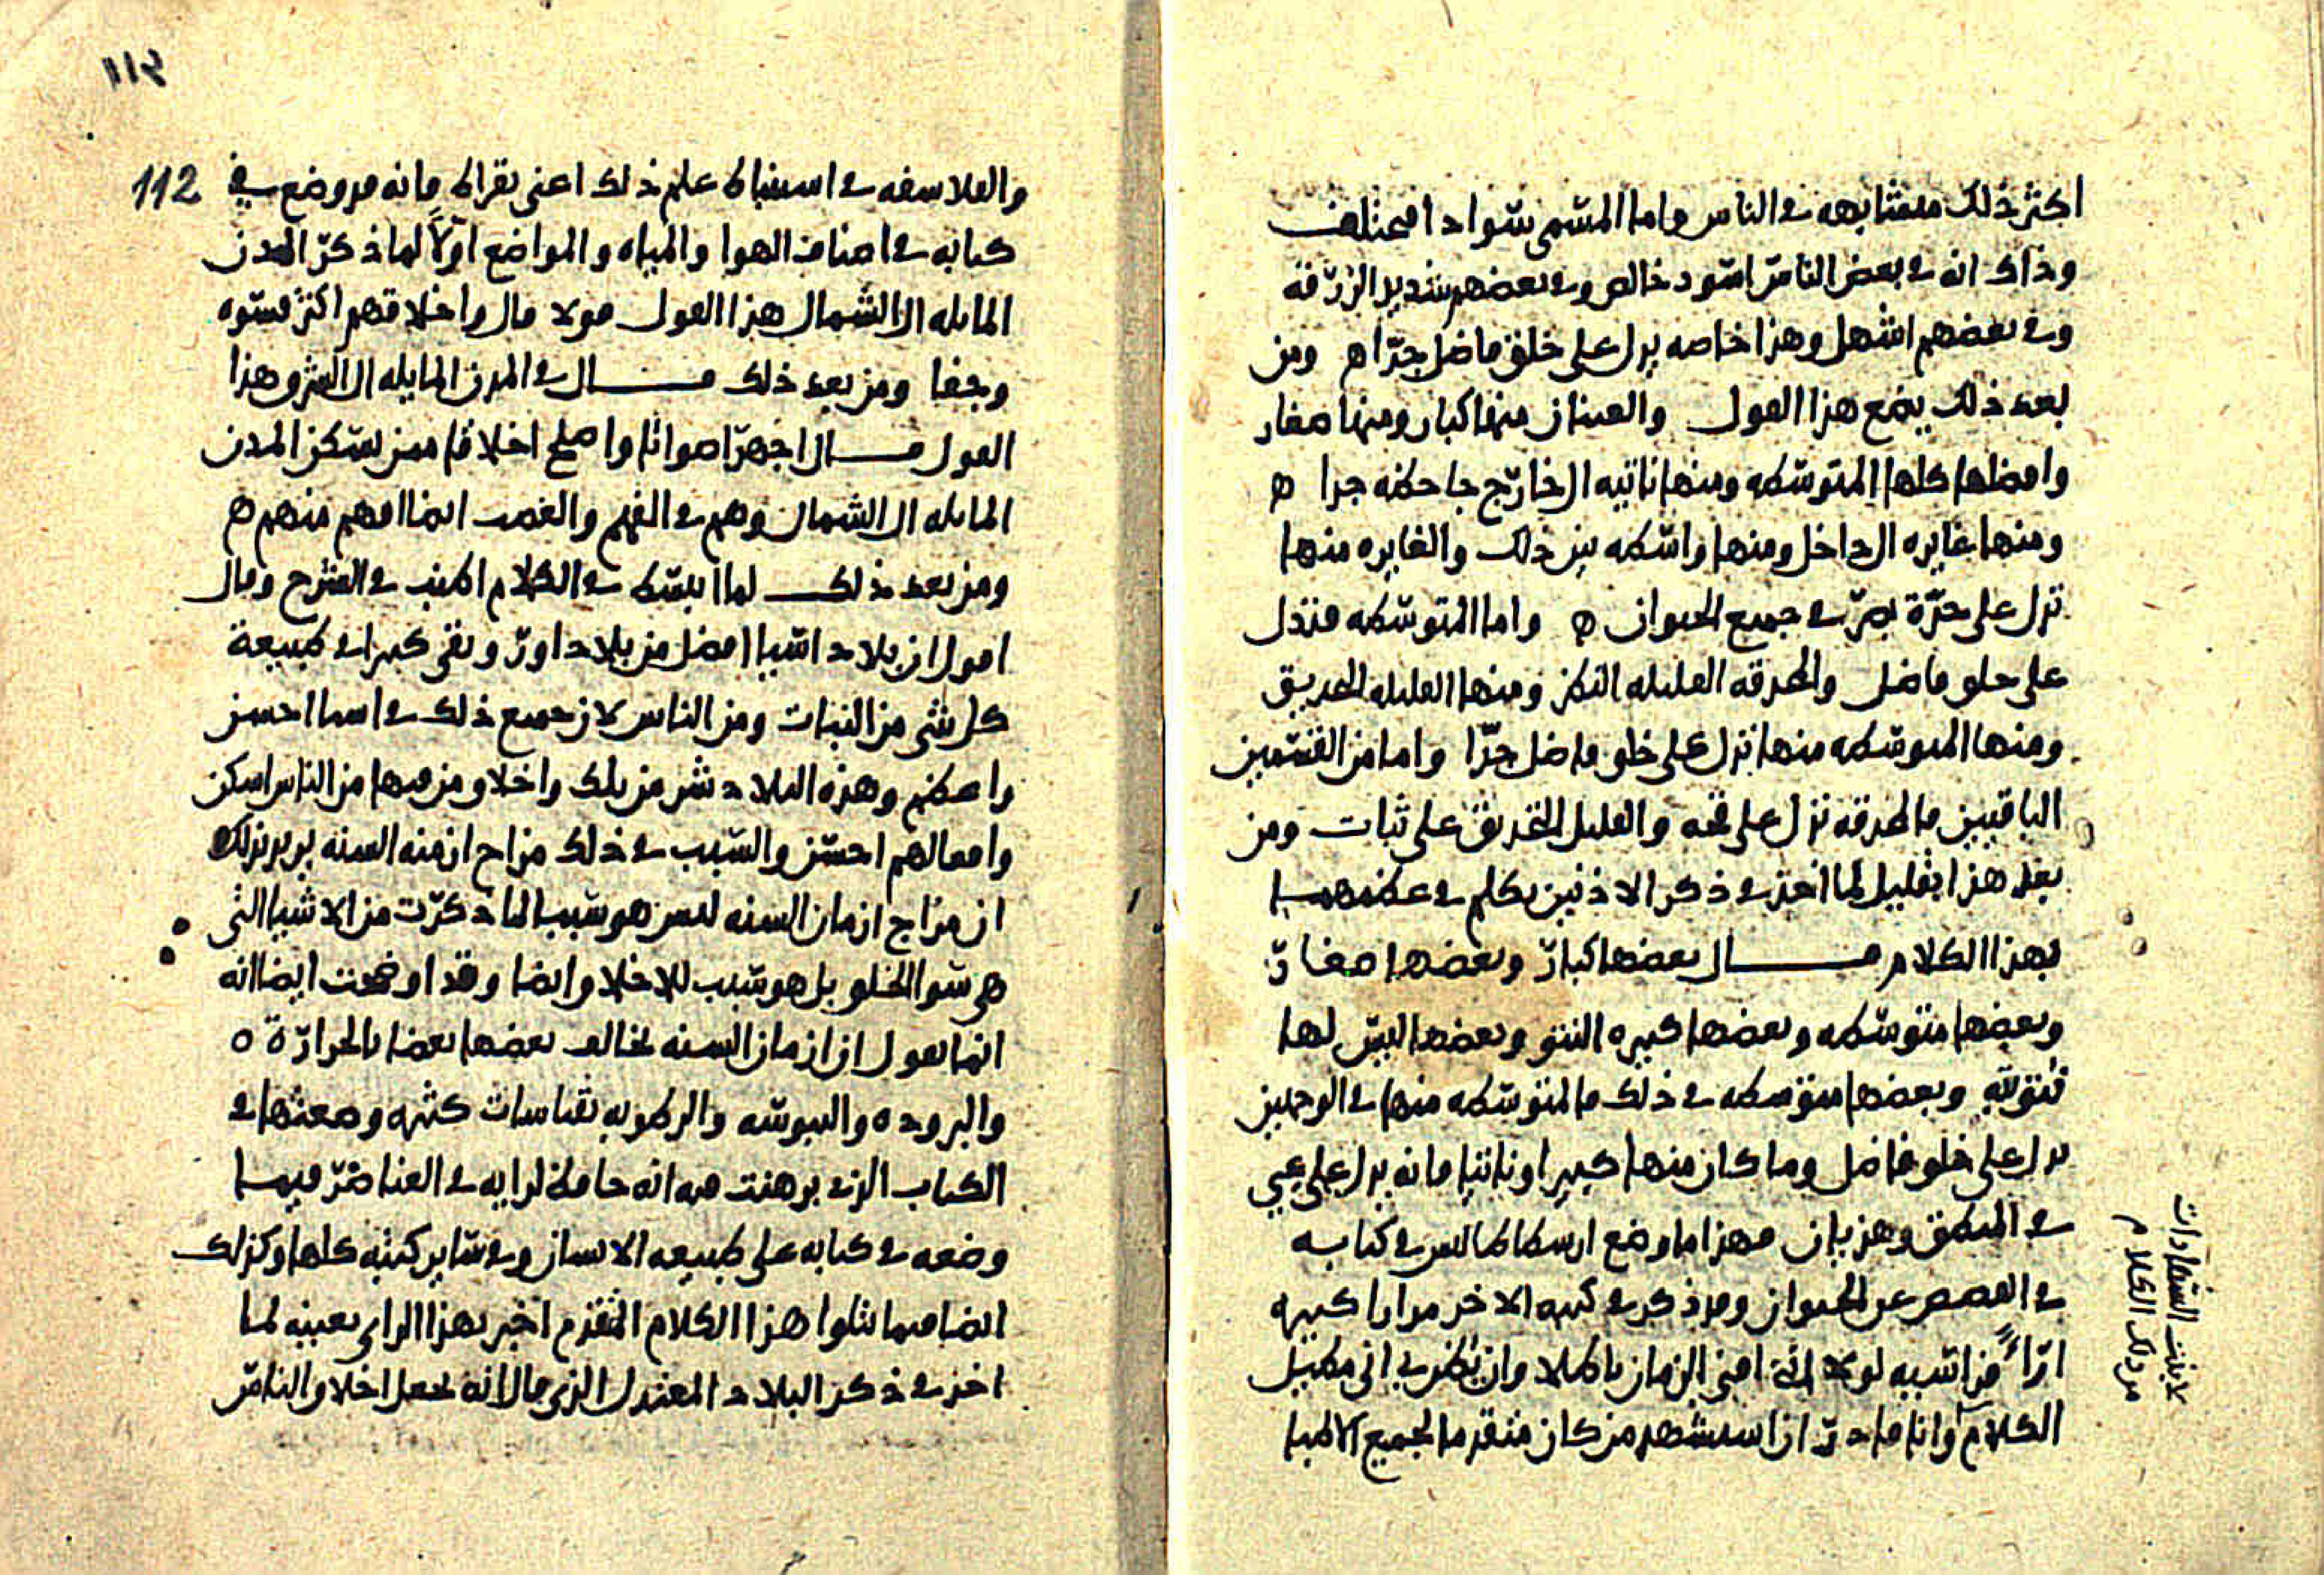 اكثر ذلك متشابهه في الناس واما المسمى سوادا فمختلف
وذاك انه في بعض الناس اسود خالص وفي بعضهم شديد الزرقه
وفي بعضهم اشهل وهذا خاصه يدل على خلق فاضل جدا ه ومن
بعد ذلك يضع هذا القول والعينان منها كبار ومنها صغار
وافضلها كلها المتوسطه ومنها ناتيه الى خارج جاحظه جدا ه
ومنها غايره الى داخل ومنها واسطه بين ذلك والغايره منها
تدل على حدّة بصر في جميع الحيوان ه واما المتوسطه فتدل
على خلق فاضل والحدقه القليله النظر ومنها القليله التحديق
ومنها المتوسطه منها تدل على خلق فاضل جدّا واما من القسمين
الباقيين فالحدقه تدل على قحه والقليل التحديق على ثبات ومن
بعد هذا بقليل لما اخذ في ذكر الاذنين تكلم في عظمهما
بهذا الكلام قال بعضها كبار وبعضها صغار
وبعضها متوسطه وبعضها كبيره النتو وبعضها ليس لها
نتو لته وبعضها متوسطه في ذلك فالمتوسطه منها في الوجهين
تدل على خلق فاضل وما كان منها كبيرا وناتيا فانه يدل على عي
في المنطق وهذيان فهذا ما وضع ارسطاطالس في كتابه
في القصص عن الحيوان وقد ذكر في كتبه الاخر مرارا كثيره
اراءً من اشبه لولا انه افني الزمان باطلا وان يظن بي اني مطيل
الكلام وانا قادر ان استشهد من كان متقدما لجميع الاطبا
لا يثبت استشهادات
من ذلك الكلام
١١٢
112
والفلاسفه في استنباط علم ذلك اعني بقراط فانه قد وضع في
كتابه في اصناف الهوا والمياه والمواضع اولا لما ذكر المدن
المايله الى الشمال هذا القول قولا قال واخلاقهم اكثر قسوه
وجفا ومن بعد ذلك قال في المدن المايله الى الشرق هذا
القول قال اجهر اصواتا واصلح اخلاقا ممن يسكن المدن
المايله الى الشمال وهم في الفهم والغضب ايضا افهم منهم ه
ومن بعد ذلك لما ابتسط في الكلام اطنب في الشرح وقال
اقول ان بلاد اسيا افضل من بلاد اورو بقى كثيرا في طبيعة
كل شي من النبات ومن الناس لان جميع ذلك في اسيا احسن
واعظم وهذه البلاد شر من تلك واخلاق من فيها من الناس اسكن
وافعالهم احسن والسبب في ذلك مزاج ازمنه السنه يريد بذلك
ان مزاج ازمان السنه ليس هو سبب لما ذكرت من الاشيا التي
هي سوا الخلق بل هو سبب للاخلاق ايضا وقد اوضحت ايضا انه
انما يقول ان ازمان السنه يخالف بعضها بعضا بالحرارة ه
والبروده واليبوسه والرطوبه بقياسات كثيره وصفتها في
الكتاب الذي برهنت فيه انه حافظ لرايه في العناصر فيما
وضعه في كتابه على طبيعه الانسان وفي ساير كتبه كلها وكذلك
ايضا فيما يتلوا هذا الكلام المتقدم اخبر بهذا الراي بعينه لما
اخذ في ذكر البلاد المعتدل الذي قال انه يجعل اخلاق الناس